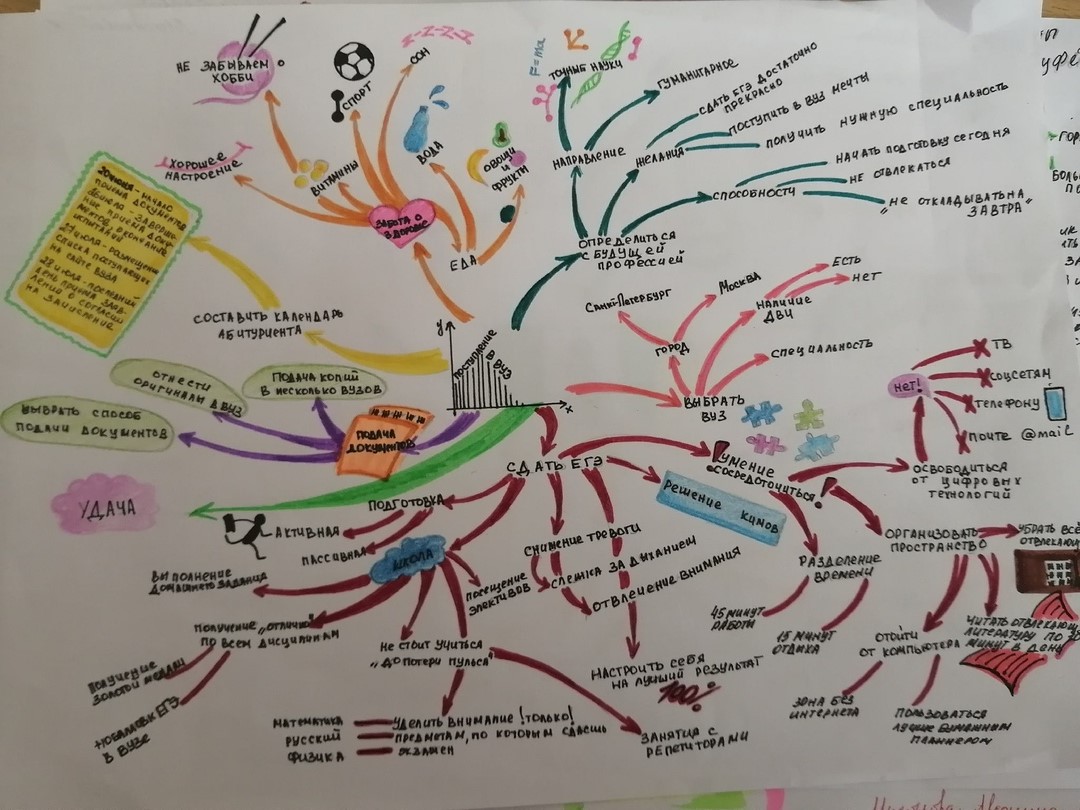 НЕ ЗАБЫВАЕМ О
ХОББИ
СПОРТ
СОН
Z-Z-Z-Z
ХОРОШЕЕ
НАСТРОЕНИЕ
ВИТАМИНЫ
ВОДА
ОВОЩИ
И
ФРУКТЫ
ЗАБОТА О
ЗДОРОВЬЕ
ЕДА
F=ma
ТОЧНЫЕ НАУКИ
ГУМАНИТАРНОЕ
НАПРАВЛЕНИЕ
ЖЕЛАНИЯ
СДАТЬ ЕГЭ ДОСТАТОЧНО
ПРЕКРАСНО
ПОСТУПИТЬ В ВУЗ МЕЧТЫ
ПОЛУЧИТЬ НУЖНУЮ СПЕЦИАЛЬНОСТЬ
СПОСОБНОСТИ
НАЧАТЬ ПОДГОТОВКУ СЕГОДНЯ
НЕ ОТВЛЕКАТЬСЯ
„НЕ ОТКЛАДЫВАТЬ НА
ЗАВТРА"
ОПРЕДЕЛИТЬСЯ
С БУДУЩЕЙ
ПРОФЕССИЕЙ
20 ИЮНЯ - НАЧАЛО
ПРИЁМА ДОКУМЕНТОВ
ИЮЛЯ - ЗАВЕРШЕ-
НИЕ ПРИЁМА ДОКУ-
МЕНТОВ, ОКОНЧАНИЕ
ИСПЫТАНИЙ
27 ИЮЛЯ - РАЗМЕЩЕНИЕ
СПИСКА ПОСТУПАЮЩИХ
НА САЙТЕ ВУЗА
28 ИЮЛЯ - ПОСЛЕДНИЙ
ДЕНЬ ПРИЁМА ЗАЯВ-
ЛЕНИЙ О СОГЛАСИИ
НА ЗАЧИСЛЕНИЕ
СОСТАВИТЬ КАЛЕНДАРЬ
АБИТУРИЕНТА
y
ПОСТУПЛЕНИЕ
В
ВУЗ
x
САНКТ-ПЕТЕРБУРГ
МОСКВА
ГОРОД
НАЛИЧИЕ
ДВИ
ЕСТЬ
НЕТ
СПЕЦИАЛЬНОСТЬ
ВЫБРАТЬ
ВУЗ
ОТНЕСТИ
ОРИГИНАЛЫ В ВУЗ
ПОДАЧА КОПИЙ
В НЕСКОЛЬКО ВУЗОВ
ВЫБРАТЬ СПОСОБ
ПОДАЧИ ДОКУМЕНТОВ
ПОДАЧА
ДОКУМЕНТОВ
УДАЧА
НЕТ!
ТВ
СОЦСЕТЯМ
ТЕЛЕФОНУ
ПОЧТЕ @mail
ОСВОБОДИТЬСЯ
ОТ ЦИФРОВЫХ
ТЕХНОЛОГИЙ
СДАТЬ ЕГЭ
УМЕНИЕ
СОСРЕДОТОЧИТЬСЯ!
РЕШЕНИЕ КИМОВ
ПОДГОТОВКА
АКТИВНАЯ
ПАССИВНАЯ
ШКОЛА
ВЫПОЛНЕНИЕ
ДОМАШНЕГО ЗАДАНИЯ
ПОЛУЧЕНИЕ „ОТЛИЧНО"
ПО ВСЕМ ДИСЦИПЛИНАМ
ПОЛУЧЕНИЕ
ЗОЛОТОЙ МЕДАЛИ
+10 БАЛЛОВ К ЕГЭ
В ВУЗЕ
ПОСЕЩЕНИЕ
ЭЛЕКТИВОВ
НЕ СТОИТ УЧИТЬСЯ
„ДО ПОТЕРИ ПУЛЬСА"
МАТЕМАТИКА
РУССКИЙ
ФИЗИКА
УДЕЛИТЬ ВНИМАНИЕ !ТОЛЬКО!
ПРЕДМЕТАМ, ПО КОТОРЫМ СДАЕШЬ
ЭКЗАМЕН
ЗАНЯТИЯ С
РЕПЕТИТОРАМИ
СНИЖЕНИЕ ТРЕВОГИ
СЛЕЖКА ЗА ДЫХАНИЕМ
ОТВЛЕЧЕНИЕ ВНИМАНИЯ
НАСТРОИТЬ СЕБЯ
НА ЛУЧШИЙ РЕЗУЛЬТАТ
100%
РАЗДЕЛЕНИЕ
ВРЕМЕНИ
45 МИНУТ
РАБОТЫ
15 МИНУТ
ОТДЫХА
ОРГАНИЗОВАТЬ
ПРОСТРАНСТВО
УБРАТЬ ВСЁ
ОТВЛЕКАЮЩ
ЧИТАТЬ ОТВЛЕКАЮЩ
ЛИТЕРАТУРУ ПО
МИНУТ В ДЕНЬ
ОТОЙТИ
ОТ КОМПЬЮТЕРА
ЗОНА БЕЗ
ИНТЕРНЕТА
ПОЛЬЗОВАТЬСЯ
ЛУЧШЕ БУМАЖНЫМ
ПЛАННЕРОМ